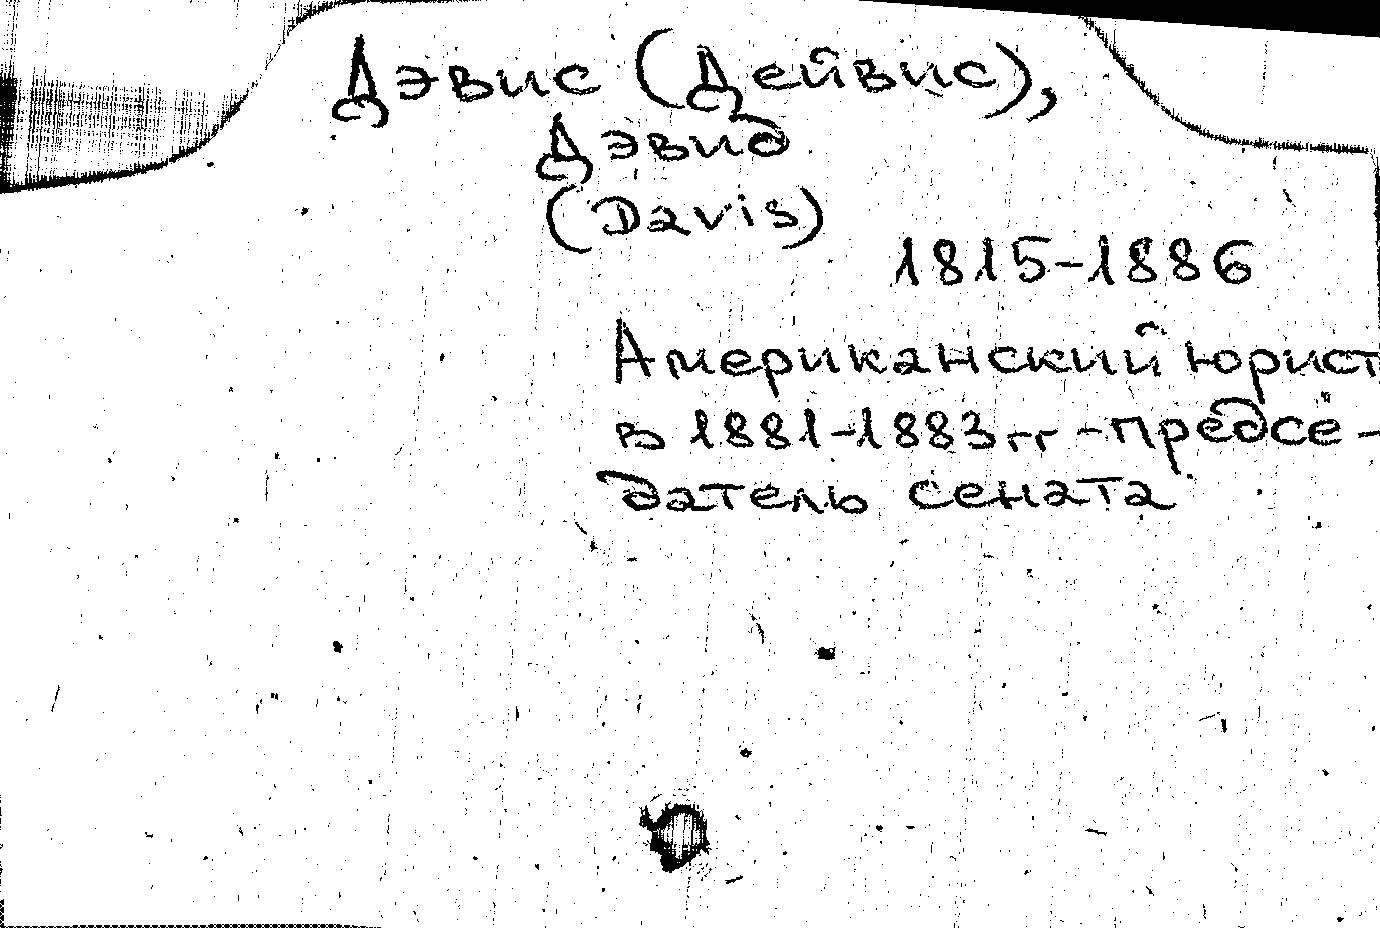 Дэвис (Дейвис),
Дэвид
(Davis)
1815-1886
Американский юрист
в 1881-1883гг - предсе-
датель сената